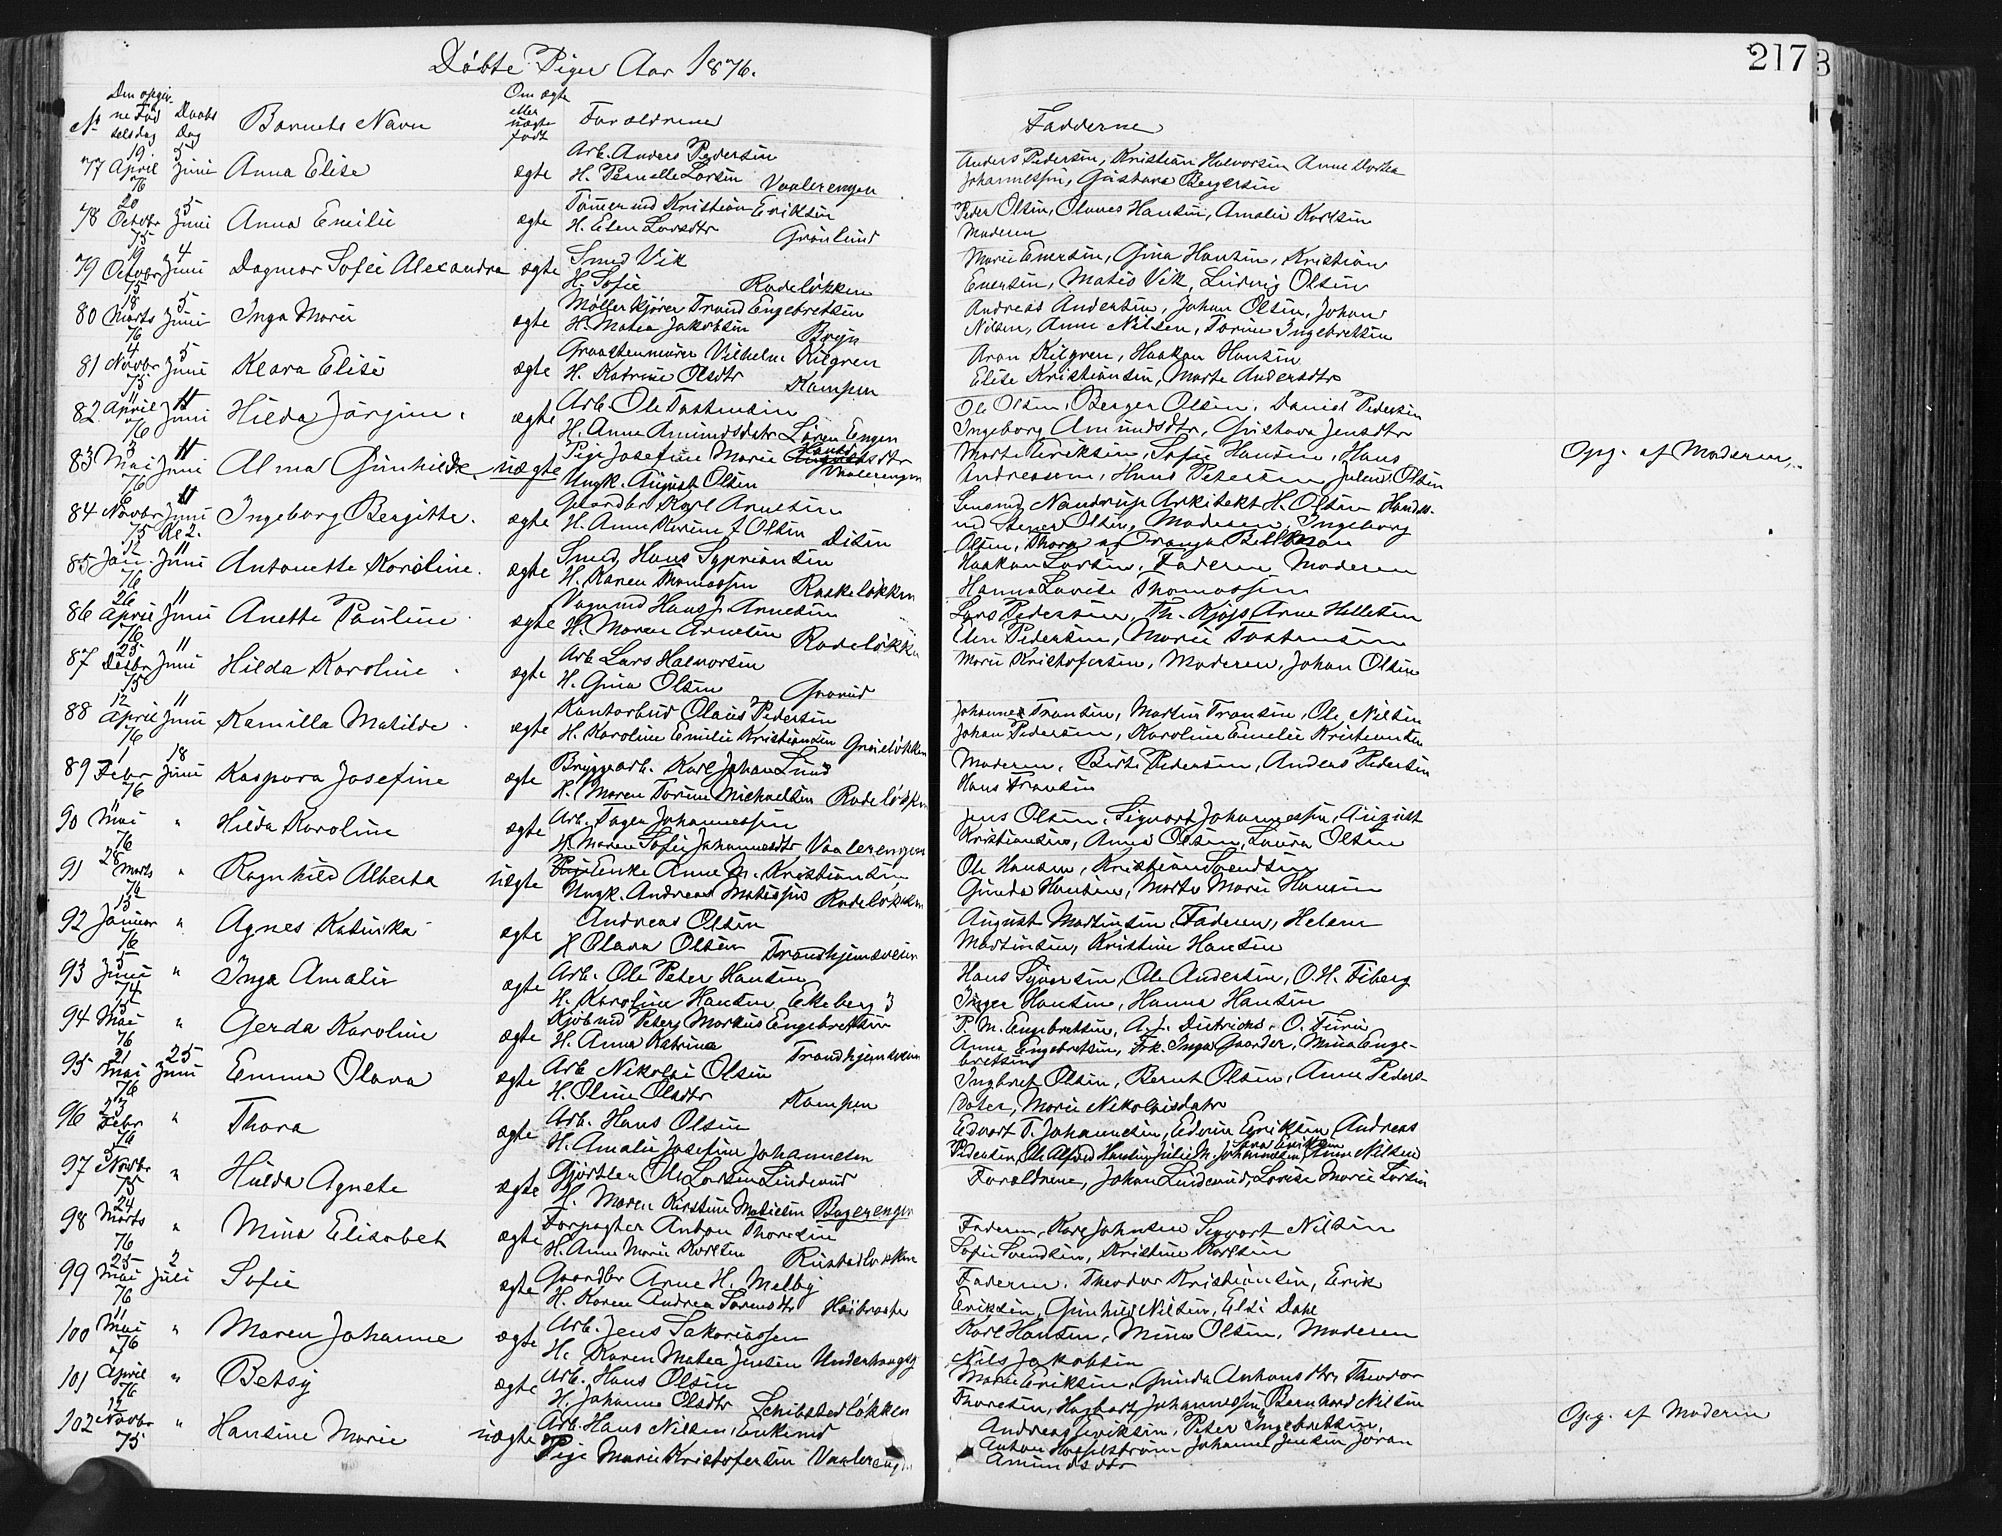 Döbte Piger Aar 1876.
217
No Den opgivne Fødselsdag Daabs Dag Barnets Navn Om ægte eller uægte født Forældrene Fadderne
77 19 April 76 5 Juni Anna Elise ægte Arb. Anders Pedersen H. Pernelle Larsen Vaalerengen
Anders Pedersen, Kristian Halvorsen Anne Dorthea
Johannessen, Gustava Bergersen
78 20 Octobr 75 5 Juni Anna Emilie ægte Tømermd Kristian Eriksen H. Elen Larsdtr Grønlund
Peder Olsen, Olaves Hansen, Amalie Karlsen
Moderen
79 19 Octobr 75 4 Juni Dagmar Sofie Alexandra ægte Smed Vik H. Sofie Rodeløkken
Marie Enersen, Gina Hansen, Kristian
Enersen, Matis Vik, Ludvig Olsen
80 18 Marts 76 5 Juni Inga Marie ægte Møllerkjører Trond Engebretsen H. Matea Jakobsen Bryn
Andreas Andersen, Johan Olsen, Johan
Nilsen, Anne Nilsen, Torine Ingebretsen
81 4 Novbr 75 5 Juni Klara Elise ægte Graastensmurer Vilhelm Kilgren H. Katrine Olsdtr Kampen
Aron Kilgren, Haakon Hansen
Elise Kristiansen, Marte Andersdtr
82 11 April 76 11 Juni Hilda Jørgine ægte Arb. Ole Tostensen H. Anne Amundsdatr Løren Engen
Ole Olsen, Berger Olsen, Daniel Pedersen
Ingeborg Amundsdtr, Gustava Jensdtr
83 3 Mai 76 11 Juni Alma Gunhilde uægte Pige Josefine Marie Hansdtr Vaalerengen Ungk. August Olsen
Marte Eriksen, Sofie Hansen, Hans
Andreassen, Hans Petersen, Julius Olsen
Opg. af Moderen
84 6 Novbr 75 11 Juni Kl 2. Ingeborg Bergitte ægte Gaardbr Karl Arnesen H. Anne Karine f Olsen Disen
Lensmd Nandrup Arkitekt H. Olsen Handels-
md Stener Olsen, Moderen, Ingeborg
Olsen, Thora og Oranza Bellman
85 12 Jan. 76 11 Juni Antonette Karoline ægte Smed Hans Syprionsen H. Karen Thomassen Rodeløkken
Haakon Larsen, Faderen Moderen
Hanna Lovise Thomassen
86 26 April 76 11 Juni Anette Pauline ægte Vognmd Hans J. Arnesen H. Maren Arnesen Rodeløkken
Lars Pedersen, Th. Kjøs, Arne Hellesen
Elen Pedersen, Marie Tostensen
87 25 Desbr 75 11 Juni Hilda Karoline ægte Arb Lars Halvorsen H. Gina Olsen Grorud
Marie Kristofersen, Moderen, Johan Olsen
88 12 April 76 11 Juni Kamilla Matilde ægte Kontorbud Olaus Pedersen H. Karoline Emilie Kristiansen Grueløkken
Johannes Fransen, Martin Fransen, Ole Nilsen
Johan Pedersen, Karoline Emelie Kristiansen
89 1 Febr 76 18 Juni Kaspara Josefine ægte Bryggearb. Karl Johan Lund H. Maren Torine Michaelsen Rodeløkken
Moderen, Birte Pedersen, Anders Pedersen
Hans Fransen
90 11 Mai 76 " Hilda Karoline ægte Arb. Tagen Johannessen H. Maren Sofie Johannesdtr Vaalerengen
Jens Olsen, Sigvart Johannessen, August
Kristiansen, Anna Olsen, Laura Olsen
91 28 Marts 76 " Ragnhild Alberta uægte Enke Anne M. Kristiansen Ungk. Andreas Matissen Rodeløkken
Ole Hansen, Kristian Svendsen
Gunda Hansen, Marte Marie Hansen
92 15 Januar 76 " Agnes Katinka ægte Andreas Olsen H Olava Olsen Trondhjemsveien
August Martinsen, Faderen, Helene
Martinsen, Kristine Hansen
93 5 Juni 74 " Inga Amalie ægte Arb. Ole Peter Hansen H. Karoline Hansen Ekeberg 3
Hans Syversen, Ole Andersen, O. H. Fiberg
Inger Hansen, Hanna Hansen
94 15 Mai 76 " Gerda Karoline ægte Kjøbmd Peter Markus Engebretsen H. Anna Katrina Trondhjemsveien
P. M. Engebretsen, A. J. Dietrichs, O. Furu
Anna Engebretsen, Frk. Inga Gaarder, Mina Enge-
bretsen
95 21 Mai 76 25 Juni Emma Olava ægte Arb Nikolai Olsen H. Oline Olsdtr Kampen
Ingbret Olsen, Bernt Olsen, Anne Peders-
Dater, Marie Nikolaisdatr
96 23 Febr 76 " Thora ægte Arb. Hans Olsen H. Amalie Josefine Johannesen
Edvart T. Johannesen, Edvin Eriksen, Andreas
Pedersen, Ole Alfred Hansen, Julie M. Johannessen, Anna Eriksen, Anne Nilsen
97 3 Novbr 75 " Hulda Agnete ægte Gjørtler Ole Larsen Linderud H. Maren Kirstine Matiesen Bagerengen
Forældrene, Johan Linderud, Lovise Marie Larsen
98 24 Marts 76 " Mina Elisabet ægte Forpagter Anton Thoresen H. Anne Marie Karlsen Rustadløkken
Faderen, Karl Johnsen Sigvart Nilsen
Sofie Svendsen, Kristine Karlsen
99 25 Mai 76 2 Juli Sofie ægte Gaardbr Arne H. Melby H. Karen Andrea Sorensdtr Høibraaten
Faderen, Theodor Kristiansen, Erik
Eriksen, Gunhild Nilsen, Elsi Dahl
100 11 Mai 76 " Maren Johanne ægte Arb. Jens Sakariassen H. Karen Matea Jensen Underhaugsg
Karl Hansen, Mina Olsen, Moderen
Nils Jakobsen
101 April 76 " Betsy ægte Arb. Hans Olsen H. Johanne Olsdtr Schibstedløkken
Marie Eriksen, Gunda Antonsdtr, Theodor
Thoresen, Hagbart Johannessen, Bernhard Nilsen
102 12 Novbr 75 " Hansine Marie uægte Arb. Hans Nilsen, Enkemd og Pige Marie Kristofersen Vaalereng
Andreas Eriksen, Peter Ingebretsen,
Anton Johanne Jensen Jøran
Amundsdtr
Opg. af Moderen